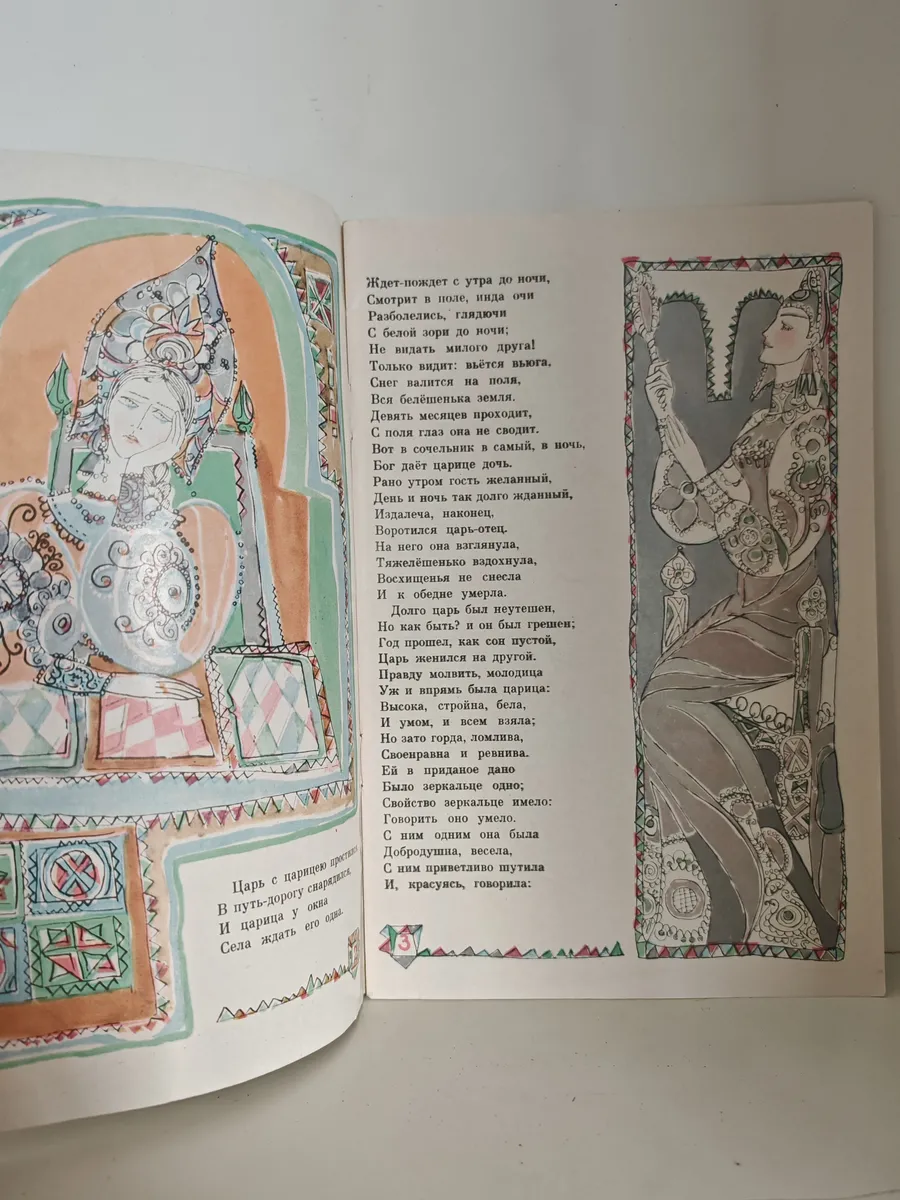 Царь с царицею простился,
В путь-дорогу снарядился,
И царица у окна
Села ждать его одна.
Ждет-пождет с утра до ночи,
Смотрит в поле, инда очи
Разболелись, глядючи
С белой зори до ночи;
Не видать милого друга!
Только видит: вьётся вьюга,
Снег валится на поля,
Вся белёшенька земля.
Девять месяцев проходит,
С поля глаз она не сводит.
Вот в сочельник в самый, в ночь,
Бог даёт царице дочь.
Рано утром гость желанный,
День и ночь так долго жданный,
Издалеча, наконец,
Воротился царь-отец.
На него она взглянула,
Тяжелёшенько вздохнула,
Восхищенья не снесла
И к обедне умерла.
Долго царь был неутешен,
Но как быть? и он был грешен;
Год прошел, как сон пустой,
Царь женился на другой.
Правду молвить, молодица
Уж и впрямь была царица:
Высока, стройна, бела,
И умом, и всем взяла;
Но зато горда, ломлива,
Своенравна и ревнива.
Ей в приданое дано
Было зеркальце одно;
Свойство зеркальце имело:
Говорить оно умело.
С ним одним она была
Добродушна, весела,
С ним приветливо шутила
И, красуясь, говорила:
3